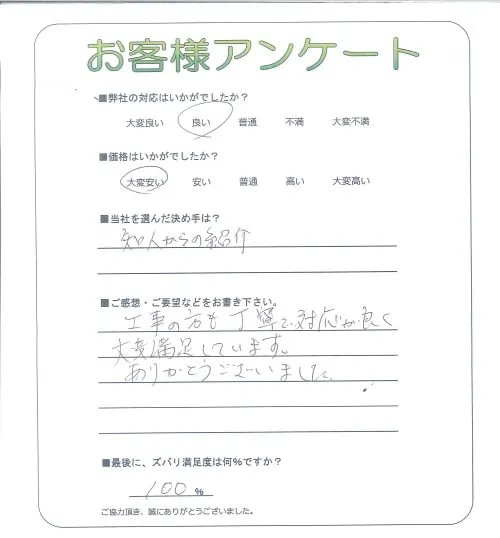 お客様アンケート
■弊社の対応はいかがでしたか？
大変良い 良い 普通 不満 大変不満
■価格はいかがでしたか？
大変安い 安い 普通 高い 大変高い
■当社を選んだ決め手は？
知人からの紹介
■ご感想・ご要望などをお書き下さい。
工事の方も丁寧で対応が良く
大変満足しています。
ありがとうございました。
■最後に、ズバリ満足度は何%ですか？
100 %
ご協力頂き、誠にありがとうございました。